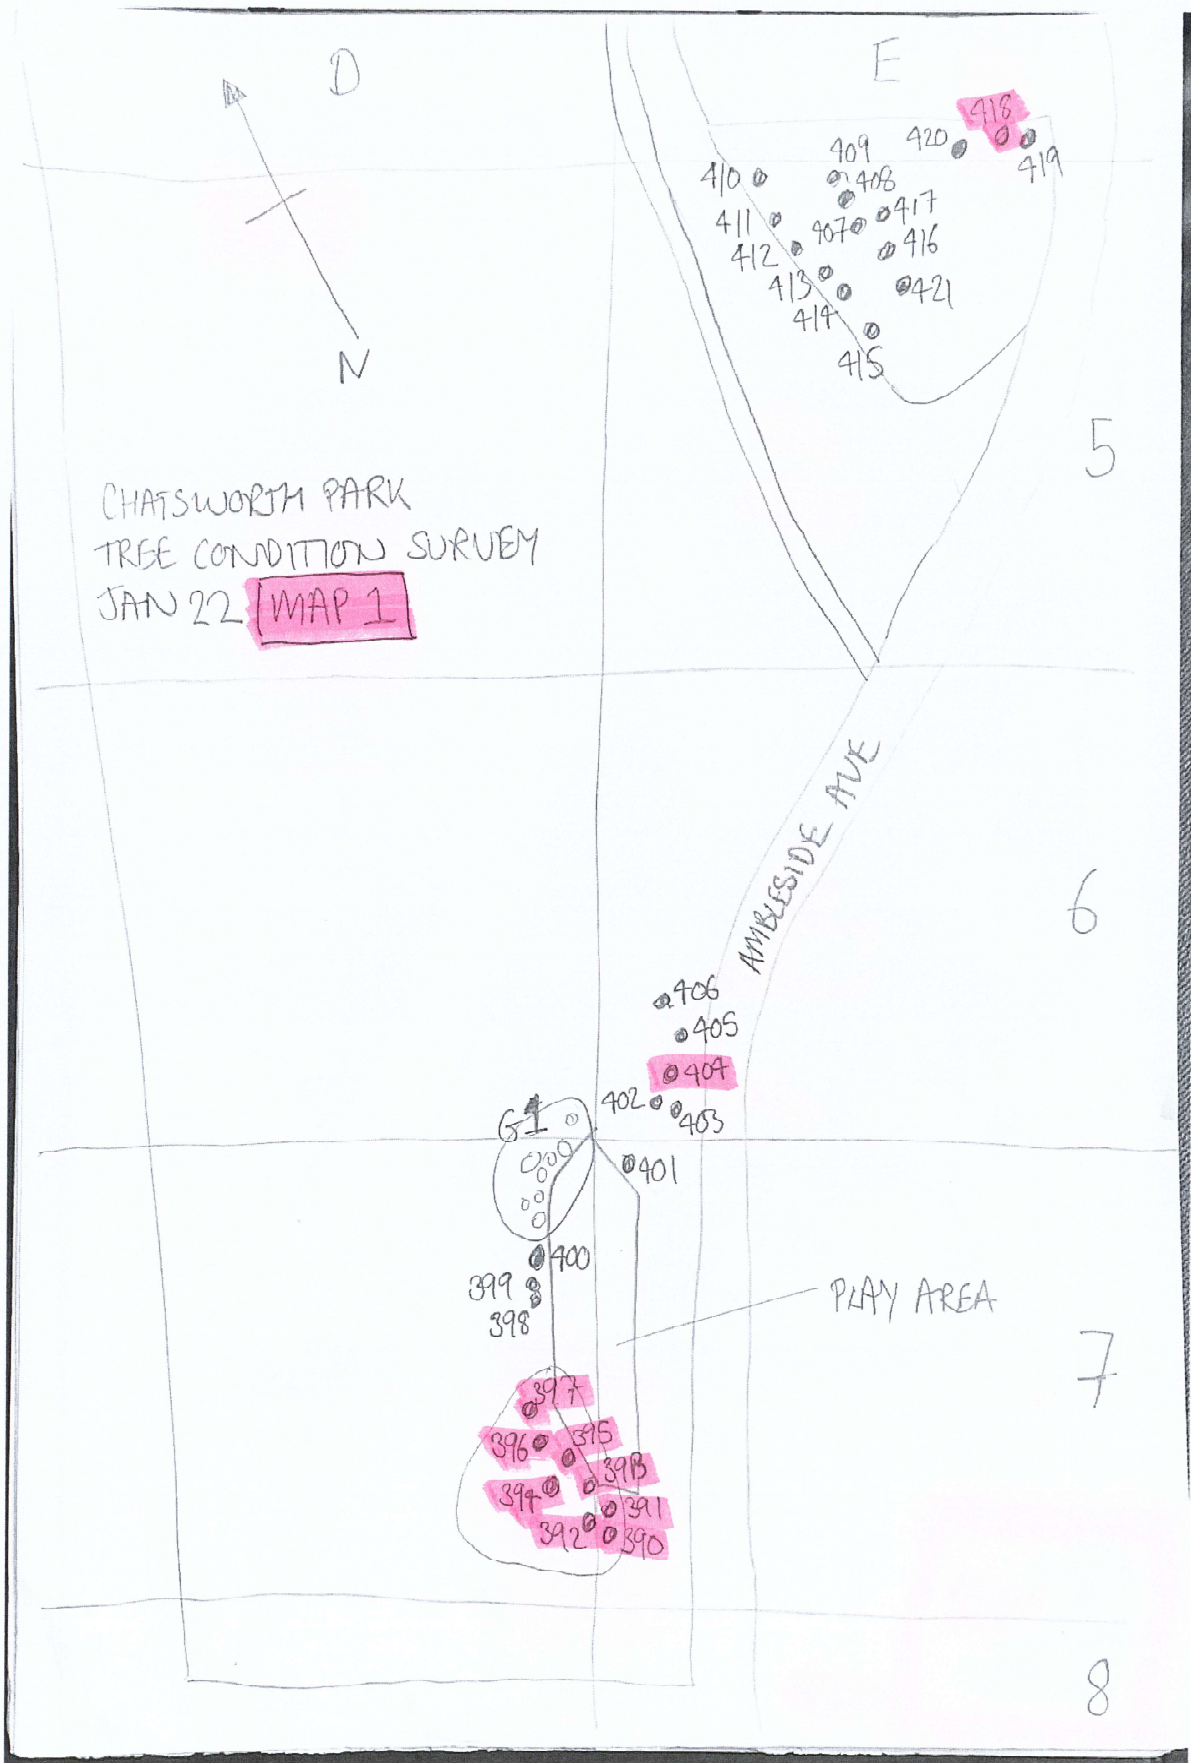 D
E
418
420
419
409
410
408
417
411
407
416
412
413
421
414
415
N
5
CHATSWORTH PARK
TREE CONDITION SURVEY
JAN 22 MAP 1
AMBLESIDE AVE
6
406
405
404
402
403
G1
401
400
399
398
PLAY AREA
7
397
395
396
393
394
391
392
390
8